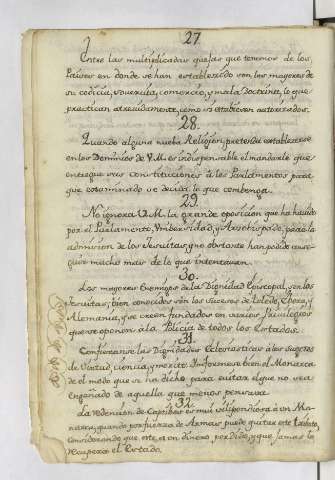 27
Entre las multiplicadas quejas que tenemos de los
Paises en donde se han establesido son las mayores de
su codicia, sovervia, comercio, y mala Doctrina, lo que
practican atrevidamente, como si estubiesen autorizados.
28.
Quando alguna nueba Religion, pretenda establecerse
en los Dominios de V.M. es indispensable el mandarle que
entregue sus Constituciones á los Parlamentos para
que examinado se decida lo que combenga.
29.
No ignora V.M. la grande oposicion que ha havido
por el Parlamento, Vmbersidad, y Arzobispado, para la
admision de los Jesuitas, y no obstante han podido conse-
guir mucho mas de lo que intentavan.
30.
Los mayores Enemigos de la Dignidad Episcopal, son los
Jesuitas; bien conocidos son los sucesos de Toledo,
Alemania, y se creen fundados en varios Privilegios
que se oponen á la Policia de todos los Estados.
31.
Confieranse las Dignidades Eclesiasticas á los sugetos
de Virtud, ciencia, y merito. Informese bien el Monarca
de el modo que se ha dicho para evitar algue no sea
engañado de aquella que menos pensare.
32.
La redencion de Captibos es mui dispendiosa á un Mo-
narca, quando por fuerza de Armas puede quitar este
Considerando que este es un dinero perdido, y que jamas lo
recupera el Estado.